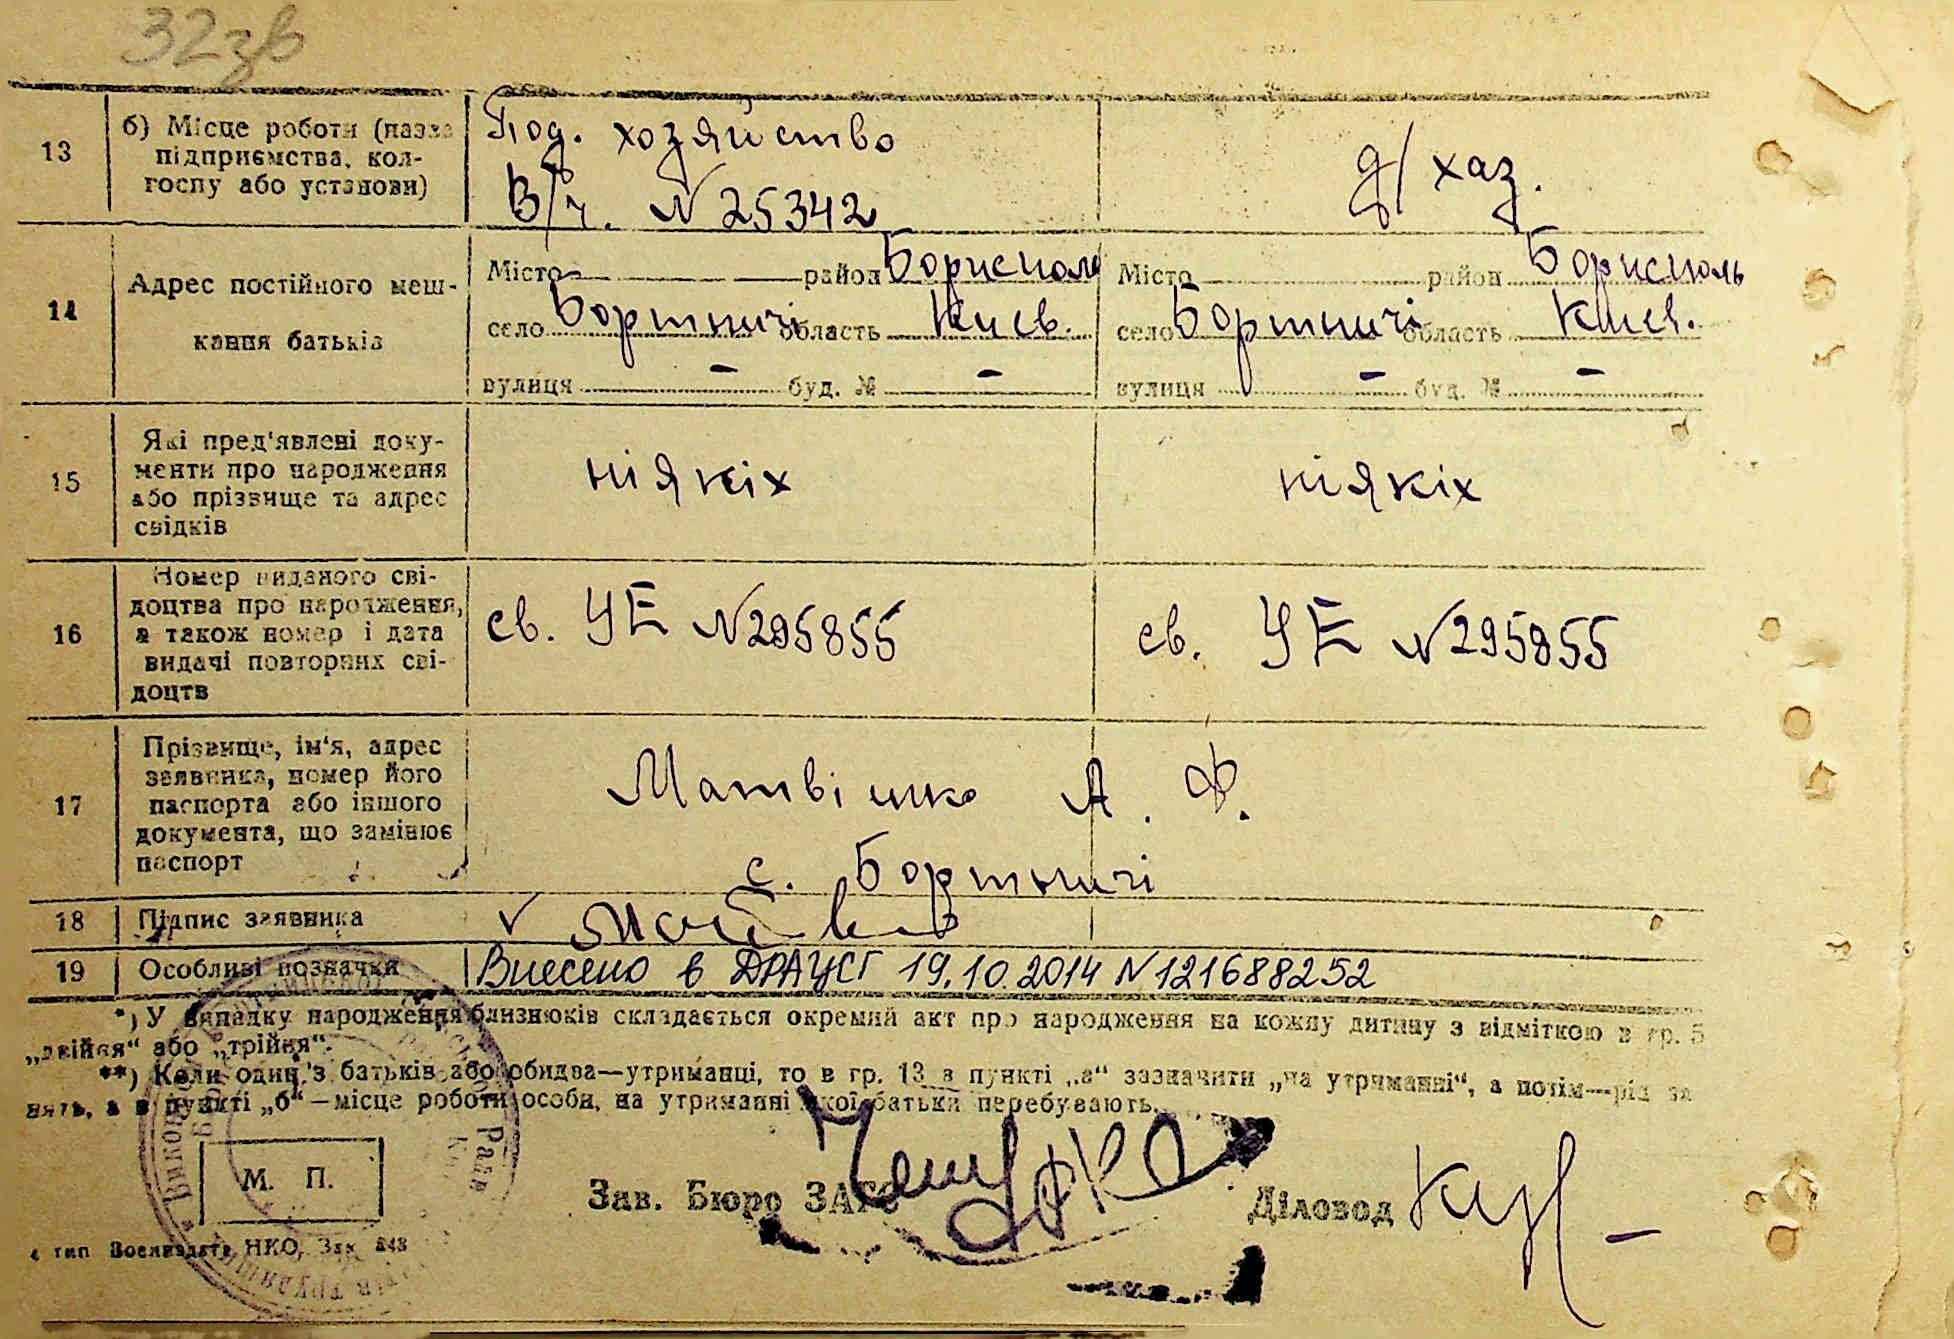 32зв
13
б) Місце роботи (назва
підприємства, кол-
госпу або установи)
Под. хозяйство
В/ч. N 25342
д/хаз.
14
Адрес постійного меш-
кання батьків
Місто район Борисполь
село Бортничі область Киев.
вулиця - буд. № -
Місто район Борисполь
село Бортничі область Киев.
вулиця - буд. № -
15
Які пред'явлені доку-
менти про народження
або прізвище та адрес
свідків
ніякіх
ніякіх
16
Номер виданого сві-
доцтва про народження,
а також номер і дата
видачі повторних сві-
доцтв
св. УЕ N295855
св. УЕ N295855
17
Прізвище, ім'я, адрес
заявника, номер його
паспорта або іншого
документа, що замінює
паспорт
Матвієнко А. Ф.
с. Бортничі
18
Підпис заявника
19
Особливі позначки
Внесено в ДРАЦСГ 19.10.2014 N121688252
*) У випадку народження близнюків складається окремий акт про народження на кожну дитину з відміткою в гр. 5
„двійня“ або „трійня“.
**) Коли один з батьків або обидва—утриманці, то в гр. 13 в пункті „а“ зазначити „на утриманні“, а потім—рід за
нять, а в пункті „б“—місце роботи особи, на утриманні якої батьки перебувають.
М. П.
Зав. Бюро ЗАГС
Діловод
4 тип Воениздата НКО, Зак 843